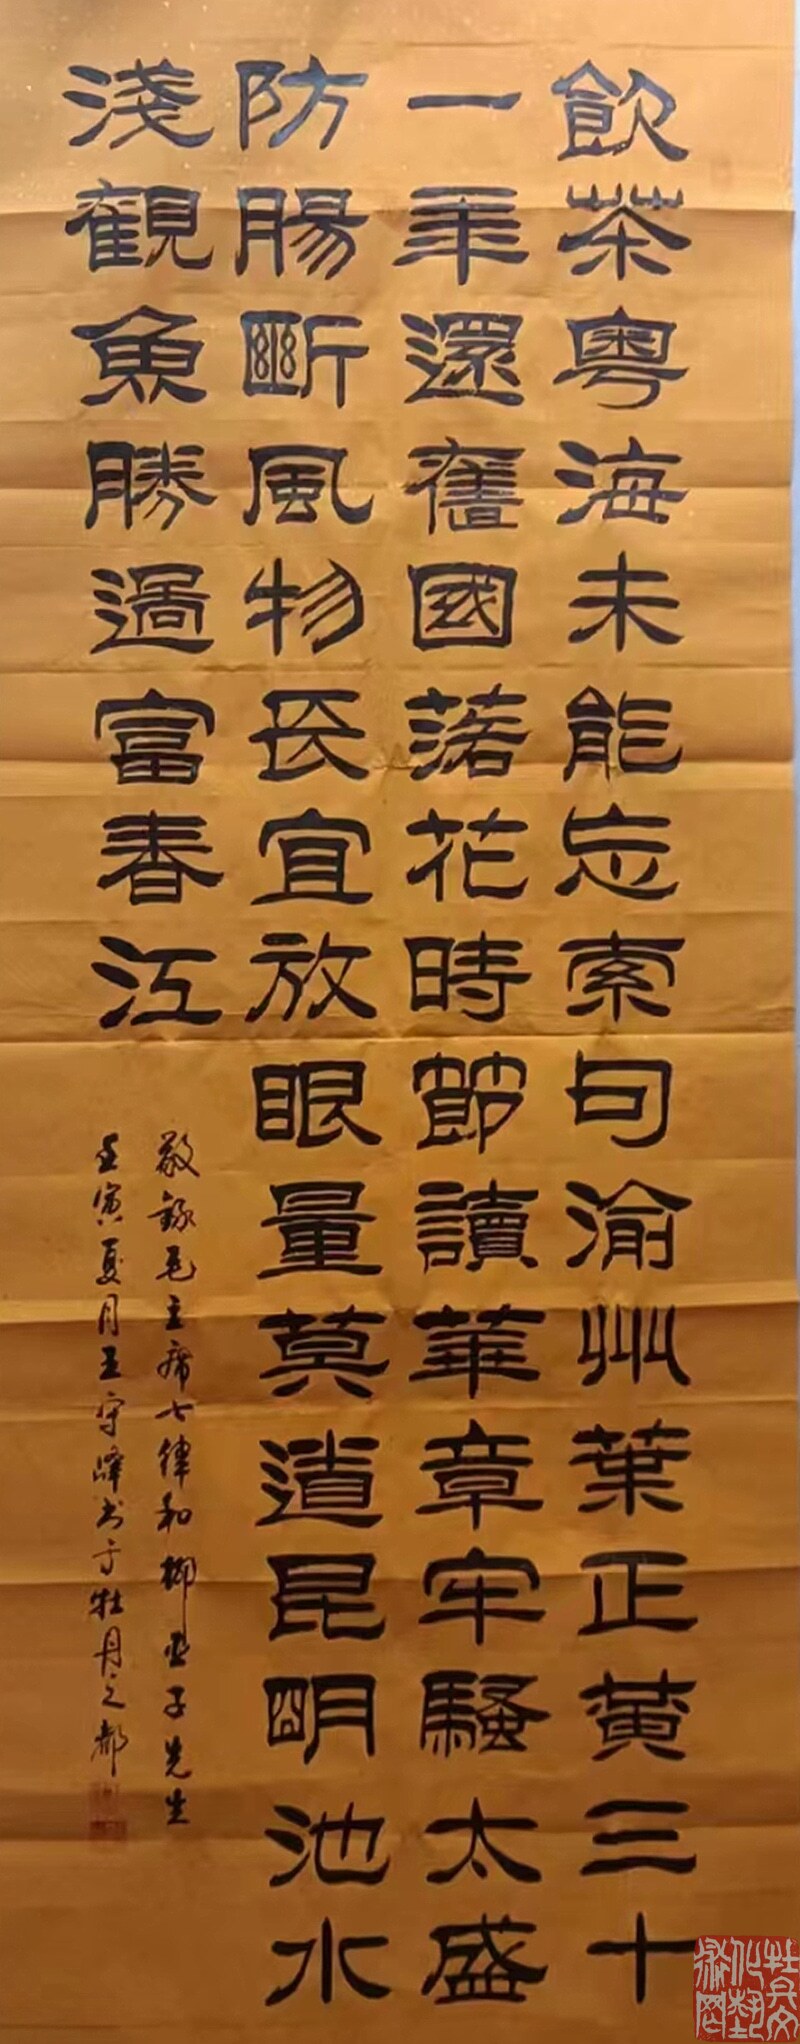 飲茶粵海未能忘索句渝州葉正黃三十
一年還舊國落花時節讀華章牢騷太盛
防腸斷風物長宜放眼量莫道昆明池水
淺觀魚勝過富春江
敬錄毛主席七律和柳亞子先生
壬寅夏月王守峰书于牡丹之都